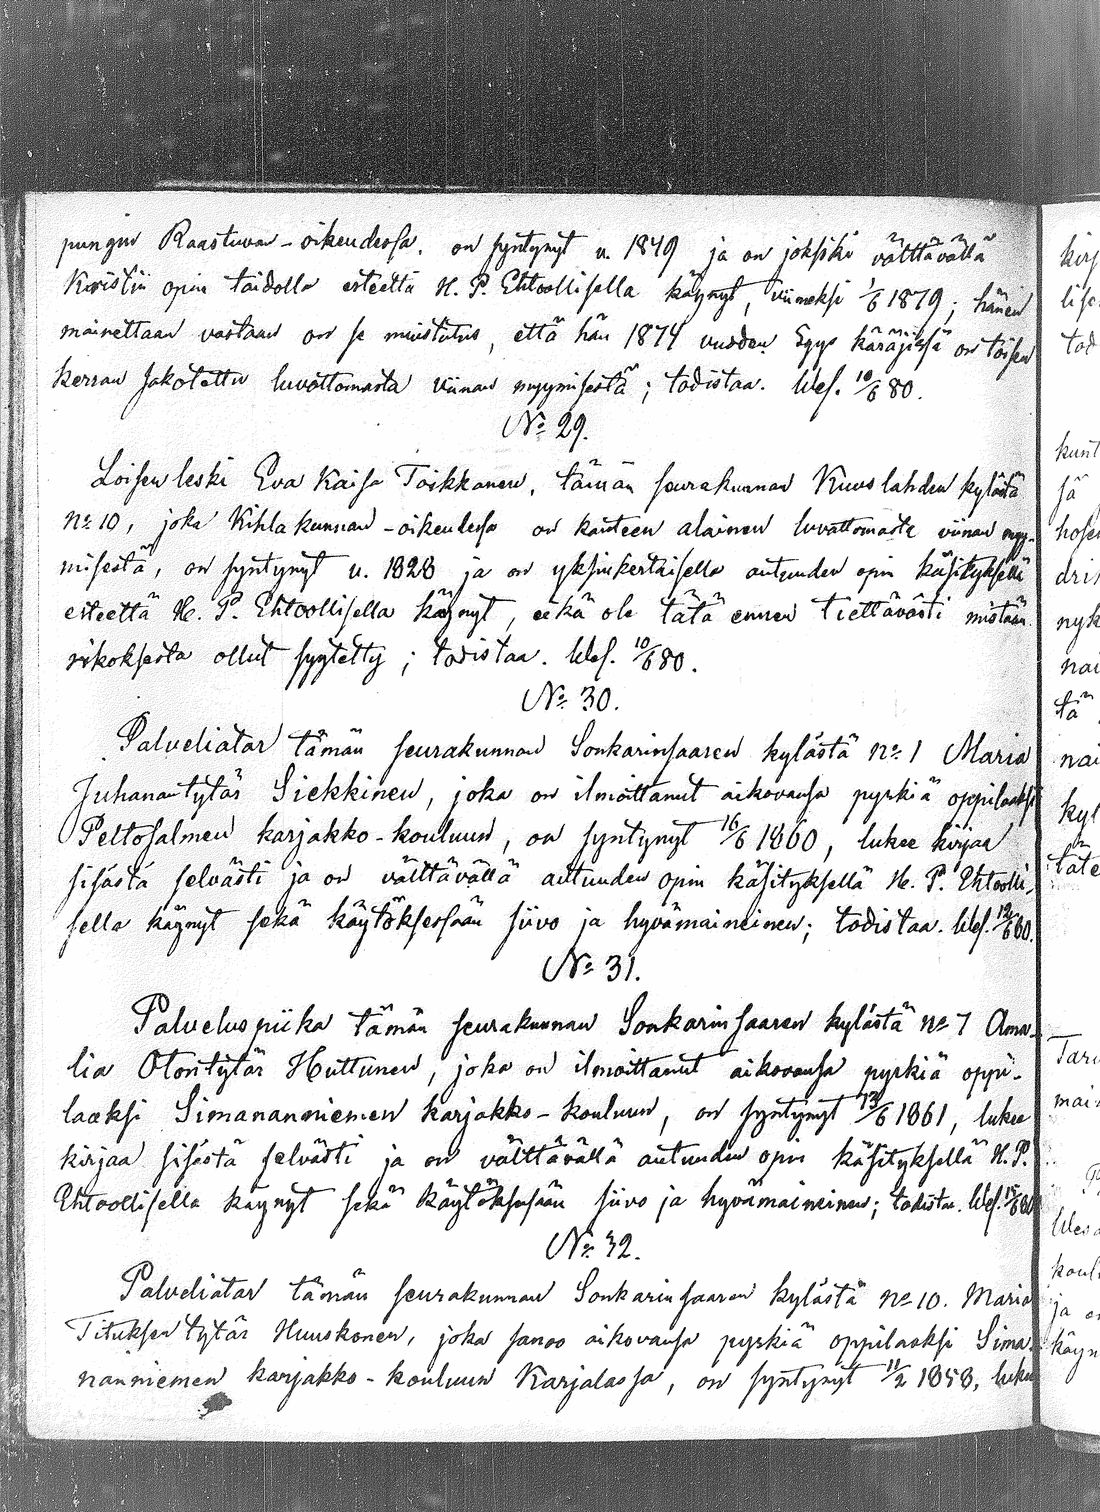 pungin Raastuvan-oikeudessa, on syntynyt v. 1849 ja on jokseski välttävällä
Kristin opin taidolla esteettä H. P. Ehtoollisella käynyt, viimeksi 1/6 1879; hänen
mainettaan vastaan on se muistutus, että hän 1874 vuoden Syys käräjissä on toisen
kerran sakotettu luvattomasta viinan myymisestä; todistaa. Wes. 10/6 80.
No 29.
Loisen leski Eva Kaisa Toikkanen, tämän seurakunnan Kuuslahden kylästä
No 10, joka Kihlakunnan-oikeudessa on kanteen alainen luvattomasta viinan myy-
misestä, on syntynyt v. 1828 ja on yksinkertaisella autuuden opin käsityksellä
esteettä H. P. Ehtoollisella käynyt, eikä ole tätä ennen tiettävästi mistään
rikoksesta ollut syytetty; todistaa. Wes. 10/6 80.
No 30.
Palveliatar tämän seurakunnan Sonkarinsaaren kylästä No 1 Maria
Juhanantytär Siekkinen, joka on ilmoittanut aikovansa pyrkiä oppilaaksi
Peltosalmen karjakko-kouluun, on syntynyt 16/6 1860, lukee kirjaa
sisästä selvästi ja on välttävällä autuuden opin käsityksellä H. P. Ehtoolli-
sella käynyt sekä käytöksessään siivo ja hyvämaineinen; todistaa. Wes. 12/6 80.
No 31.
Palveluspiika tämän seurakunnan Sonkarinsaaren kylästä No 7 Ama-
lia Otontytär Huttunen, joka on ilmoittanut aikovansa pyrkiä oppi-
laaksi Simananniemen karjakko-kouluun, on syntynyt 13/6 1861, lukee
kirjaa sisästä selvästi ja on välttävällä autuuden opin käsityksellä H. P.
Ehtoollisella käynyt sekä käytöksessään siivo ja hyvämaineinen; todistaa. Wes. 15/6 80
No 32.
Palveliatar tämän seurakunnan Sonkarinsaaren kylästä No 10. Maria
Tituksentytär Huuskonen, joka sanoo aikovansa pyrkiä oppilaaksi Sima-
nanniemen karjakko-kouluun Karjalassa, on syntynyt 11/2 1858, lukee